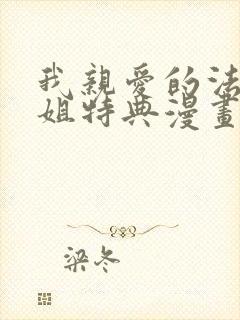 我親愛的法
姐特典漫畫
梁冬